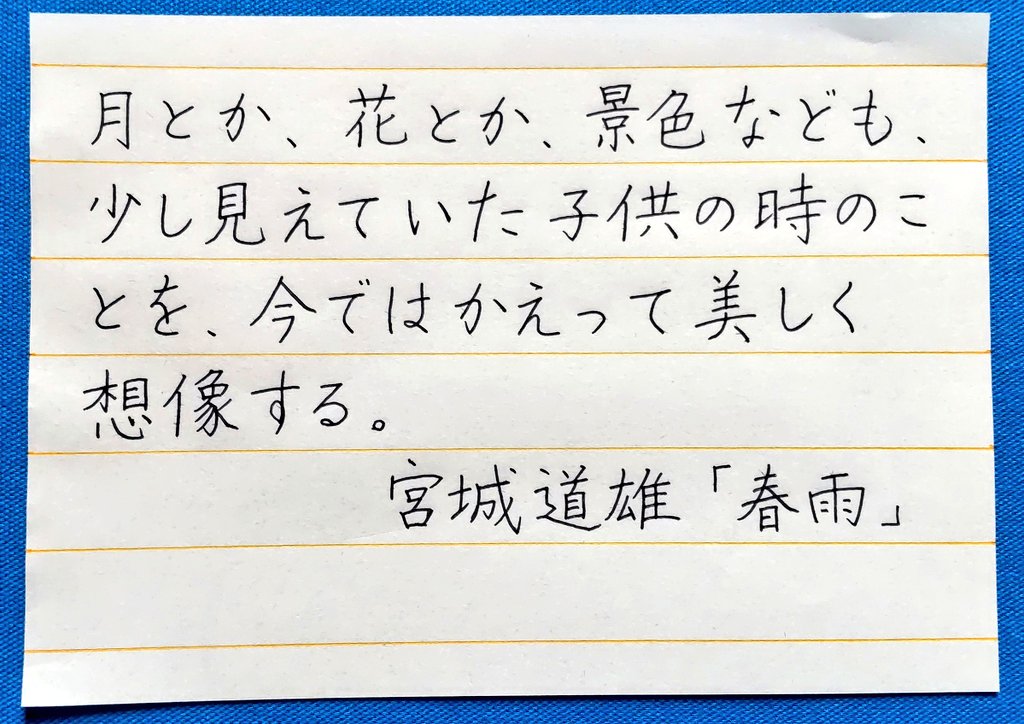 月とか、花とか、景色なども、
少し見えていた子供の時のこ
とを、今ではかえって美しく
想像する。
宮城道雄「春雨」